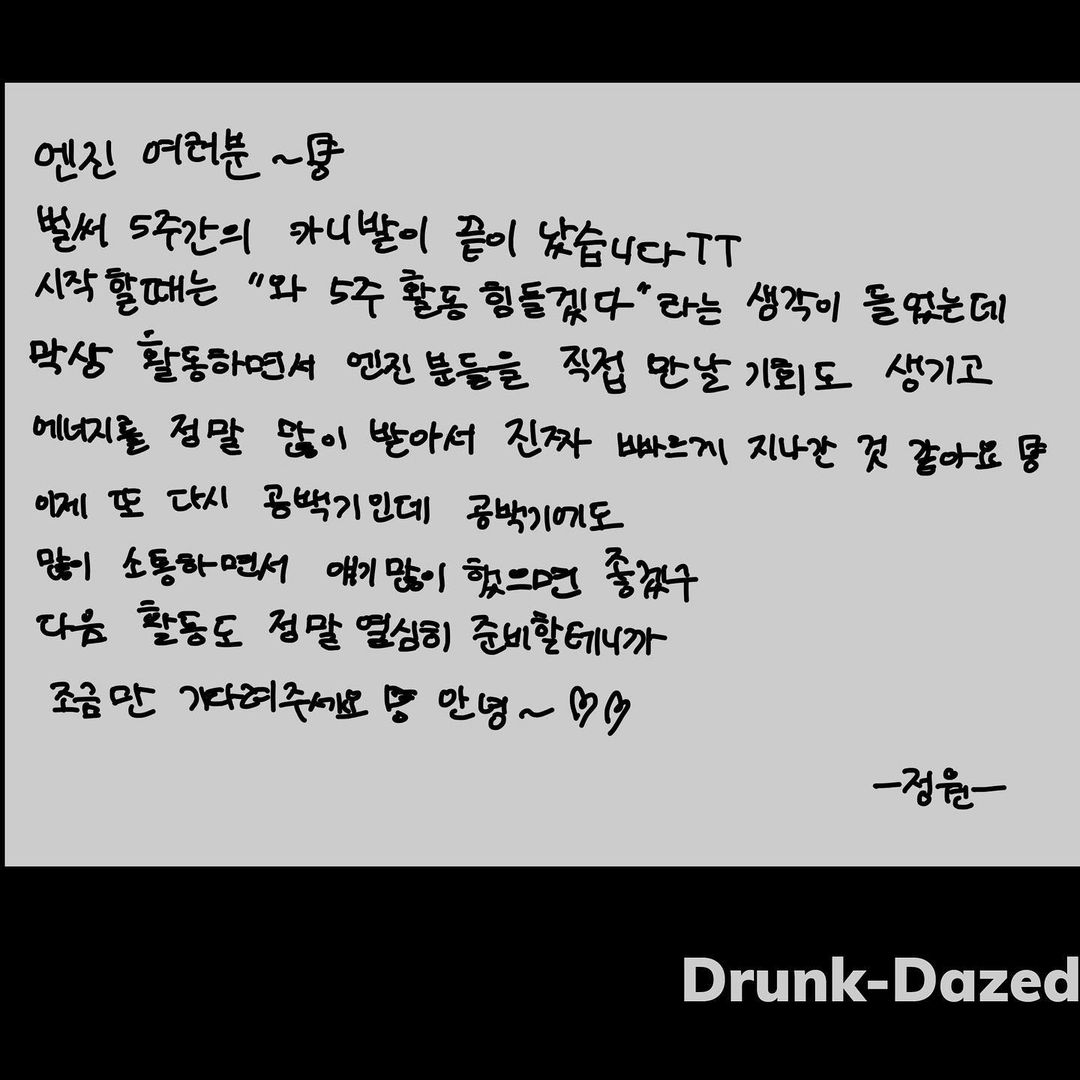 엔진 여러분 ~
벌써 5주간의 카니발이 끝이 났습니다TT
시작할때는 "와 5주 활동 힘들겠다"라는 생각이 들었는데
막상 활동하면서 엔진분들을 직접 만날 기회도 생기고
에너지를 정말 많이 받아서 진짜 빠르게 지나간 것 같아요
이제 또 다시 공백기인데 공백기에도
많이 소통하면서 얘기많이 했으면 좋겠구
다음 활동도 정말 열심히 준비할테니까
조금만 기다려주세요 안녕~ ♡♡
-정원-
Drunk-Dazed